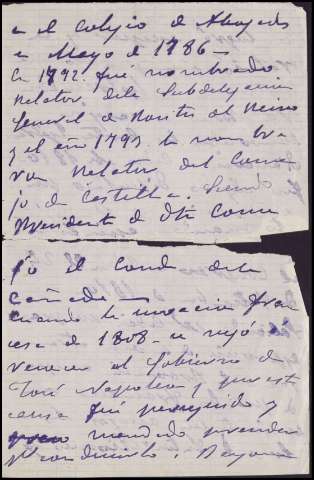 en el Colegio de Abogados
en Mayo de 1786—
En 1792 fué nombrado
Relator de la Subdelegacion
General de Montes del Reino
y el año 1799 le nombra
ron Relator del Conse
jo de Castilla. Siendo
Presidente de Dho Conse
jo el Conde de la
Cañada—
Cuando la invacion fran
cesa de 1808—se negó á
reconocer al Gobierno de
José Napoleon y por esta
causa fué perseguido y
mandado prender
y conducirlo á Bayona